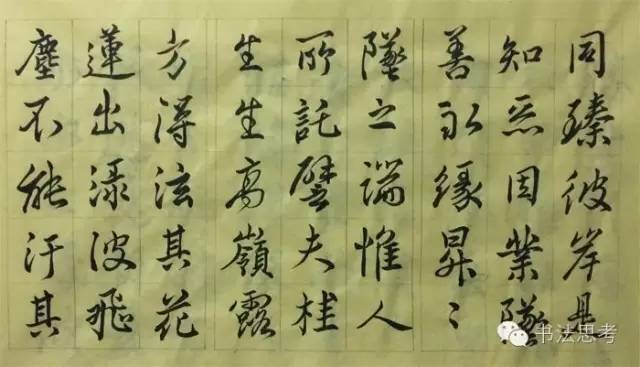 同臻彼岸是
知恶因業墜
善以緣昇〻
墜之端惟人
所託譬夫桂
生高嶺露
方得泫其花
蓮出渌波飛
塵不能汙其
书法思考